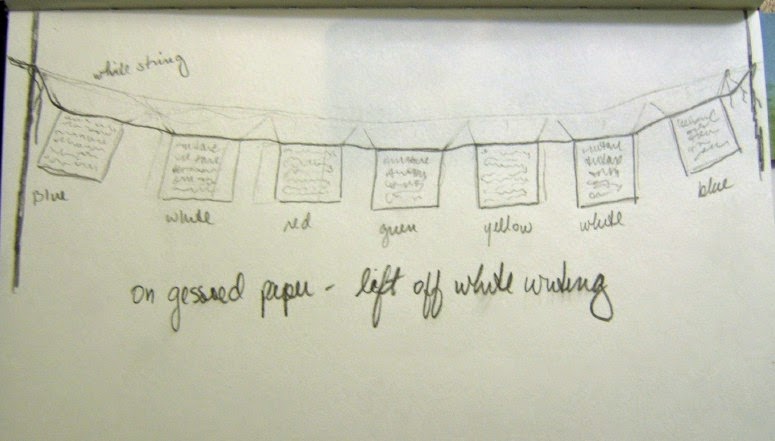 white string
Blue
white
red
green
yellow
white
blue
on gessoed paper - left off white writing